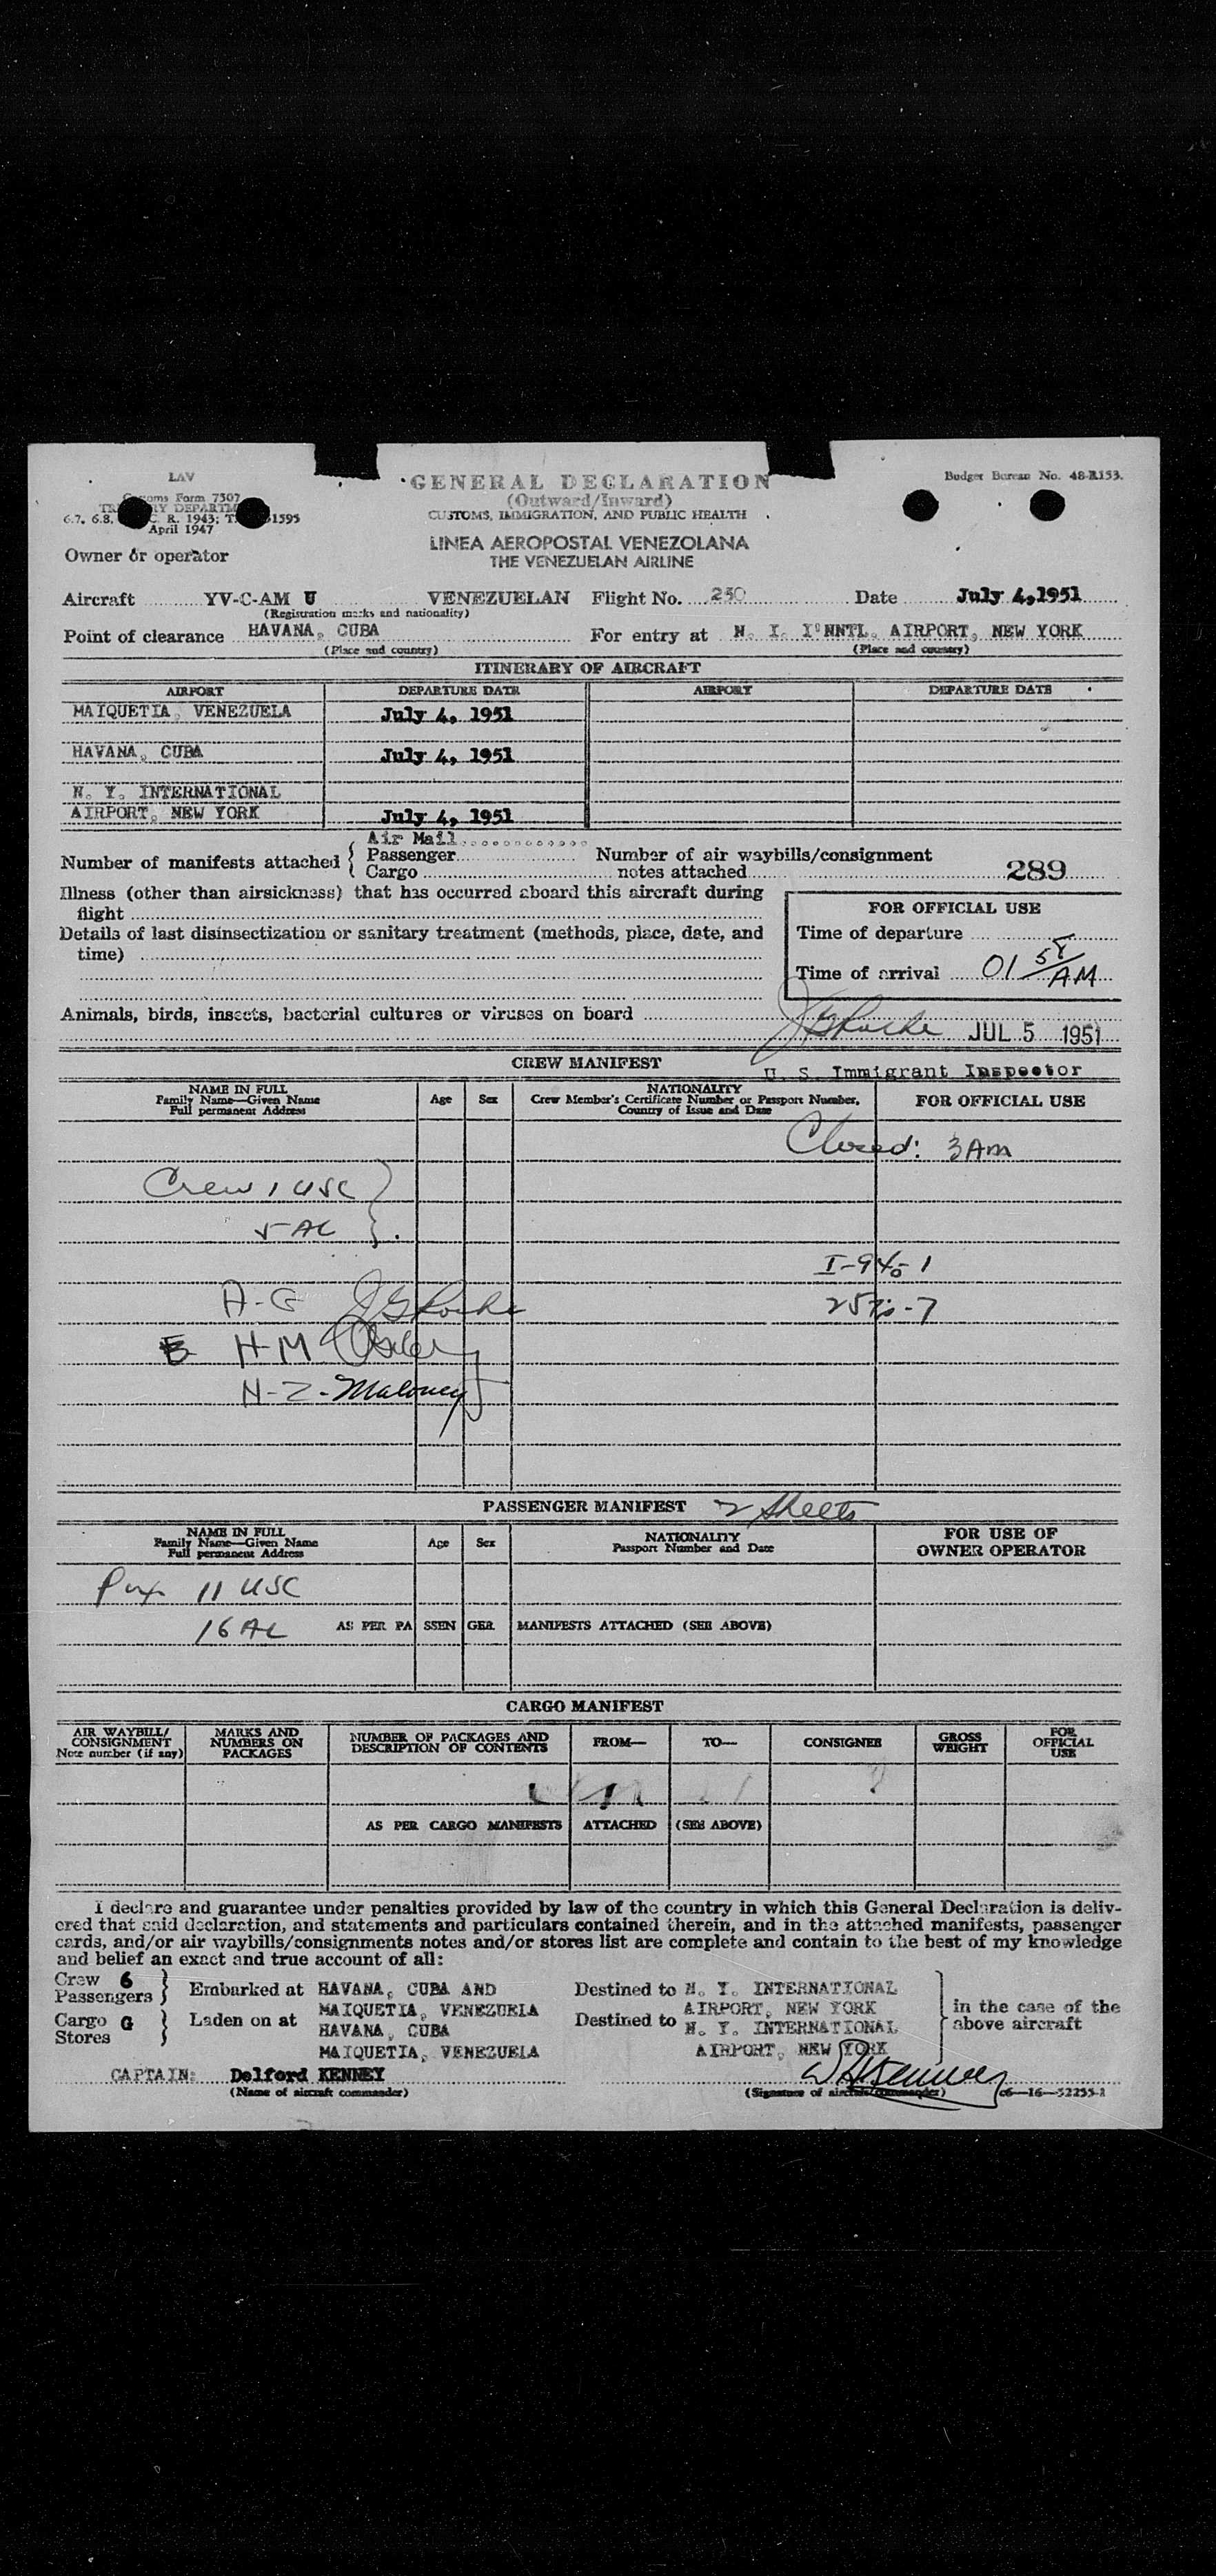 LAV
GENERAL DECLARATION
Budget Bureau No. 48-R153.
Customs Form 7507
(Outward/Inward)
TREASURY DEPARTMENT
CUSTOMS, IMMIGRATION, AND PUBLIC HEALTH
6.7, 6.8, C. R. 1943; T. 51595
April 1947
LINEA AEROPOSTAL VENEZOLANA
Owner or operator
THE VENEZUELAN AIRLINE
Aircraft YV-C-AM U VENEZUELAN Flight No. 250 Date July 4,1951
(Registration marks and nationality)
Point of clearance HAVANA, CUBA For entry at N. I. I'NNTL. AIRPORT, NEW YORK
(Place and country) (Place and country)
ITINERARY OF AIRCRAFT
AIRPORT DEPARTURE DATE AIRPORT DEPARTURE DATE
MAIQUETIA, VENEZUELA July 4, 1951
HAVANA, CUBA July 4, 1951
N. Y. INTERNATIONAL
AIRPORT, NEW YORK July 4, 1951
Air Mail
Number of manifests attached { Passenger Number of air waybills/consignment
Cargo notes attached 289
Illness (other than airsickness) that has occurred aboard this aircraft during
flight
FOR OFFICIAL USE
Details of last disinsectization or sanitary treatment (methods, place, date, and
time)
Time of departure
Time of arrival 01 58 AM
Animals, birds, insects, bacterial cultures or viruses on board
JGRoche JUL 5 1951
CREW MANIFEST
U. S. Immigrant Inspector
NAME IN FULL
Family Name—Given Name
Full permanent Address
Age Sex
NATIONALITY
Crew Member's Certificate Number or Passport Number,
Country of Issue and Date
FOR OFFICIAL USE
Closed: 3AM
Crew 1 USC }
5 AL
I-94s-1
A-G JGRoche
257s-7
H-M
N-Z-Maloney
PASSENGER MANIFEST 2 sheets
NAME IN FULL
Family Name—Given Name
Full permanent Address
Age Sex
NATIONALITY
Passport Number and Date
FOR USE OF
OWNER OPERATOR
Pax 11 USC
16 AL AS PER PA SSEN GER MANIFESTS ATTACHED (SEE ABOVE)
CARGO MANIFEST
AIR WAYBILL/
CONSIGNMENT
Note number (if any)
MARKS AND
NUMBERS ON
PACKAGES
NUMBER OF PACKAGES AND
DESCRIPTION OF CONTENTS
FROM— TO— CONSIGNEE
GROSS
WEIGHT
FOR
OFFICIAL
USE
AS PER CARGO MANIFESTS ATTACHED (SEE ABOVE)
I declare and guarantee under penalties provided by law of the country in which this General Declaration is deliv-
ered that said declaration, and statements and particulars contained therein, and in the attached manifests, passenger
cards, and/or air waybills/consignments notes and/or stores list are complete and contain to the best of my knowledge
and belief an exact and true account of all:
Crew 6
Passengers } Embarked at HAVANA, CUBA AND Destined to N. Y. INTERNATIONAL
MAIQUETIA, VENEZUELA AIRPORT, NEW YORK
Cargo G
Stores } Laden on at HAVANA, CUBA Destined to N. Y. INTERNATIONAL
MAIQUETIA, VENEZUELA AIRPORT, NEW YORK
in the case of the
above aircraft
CAPTAIN: Delford KENNEY
(Name of aircraft commander) (Signature of aircraft commander) c6—16—52255-1